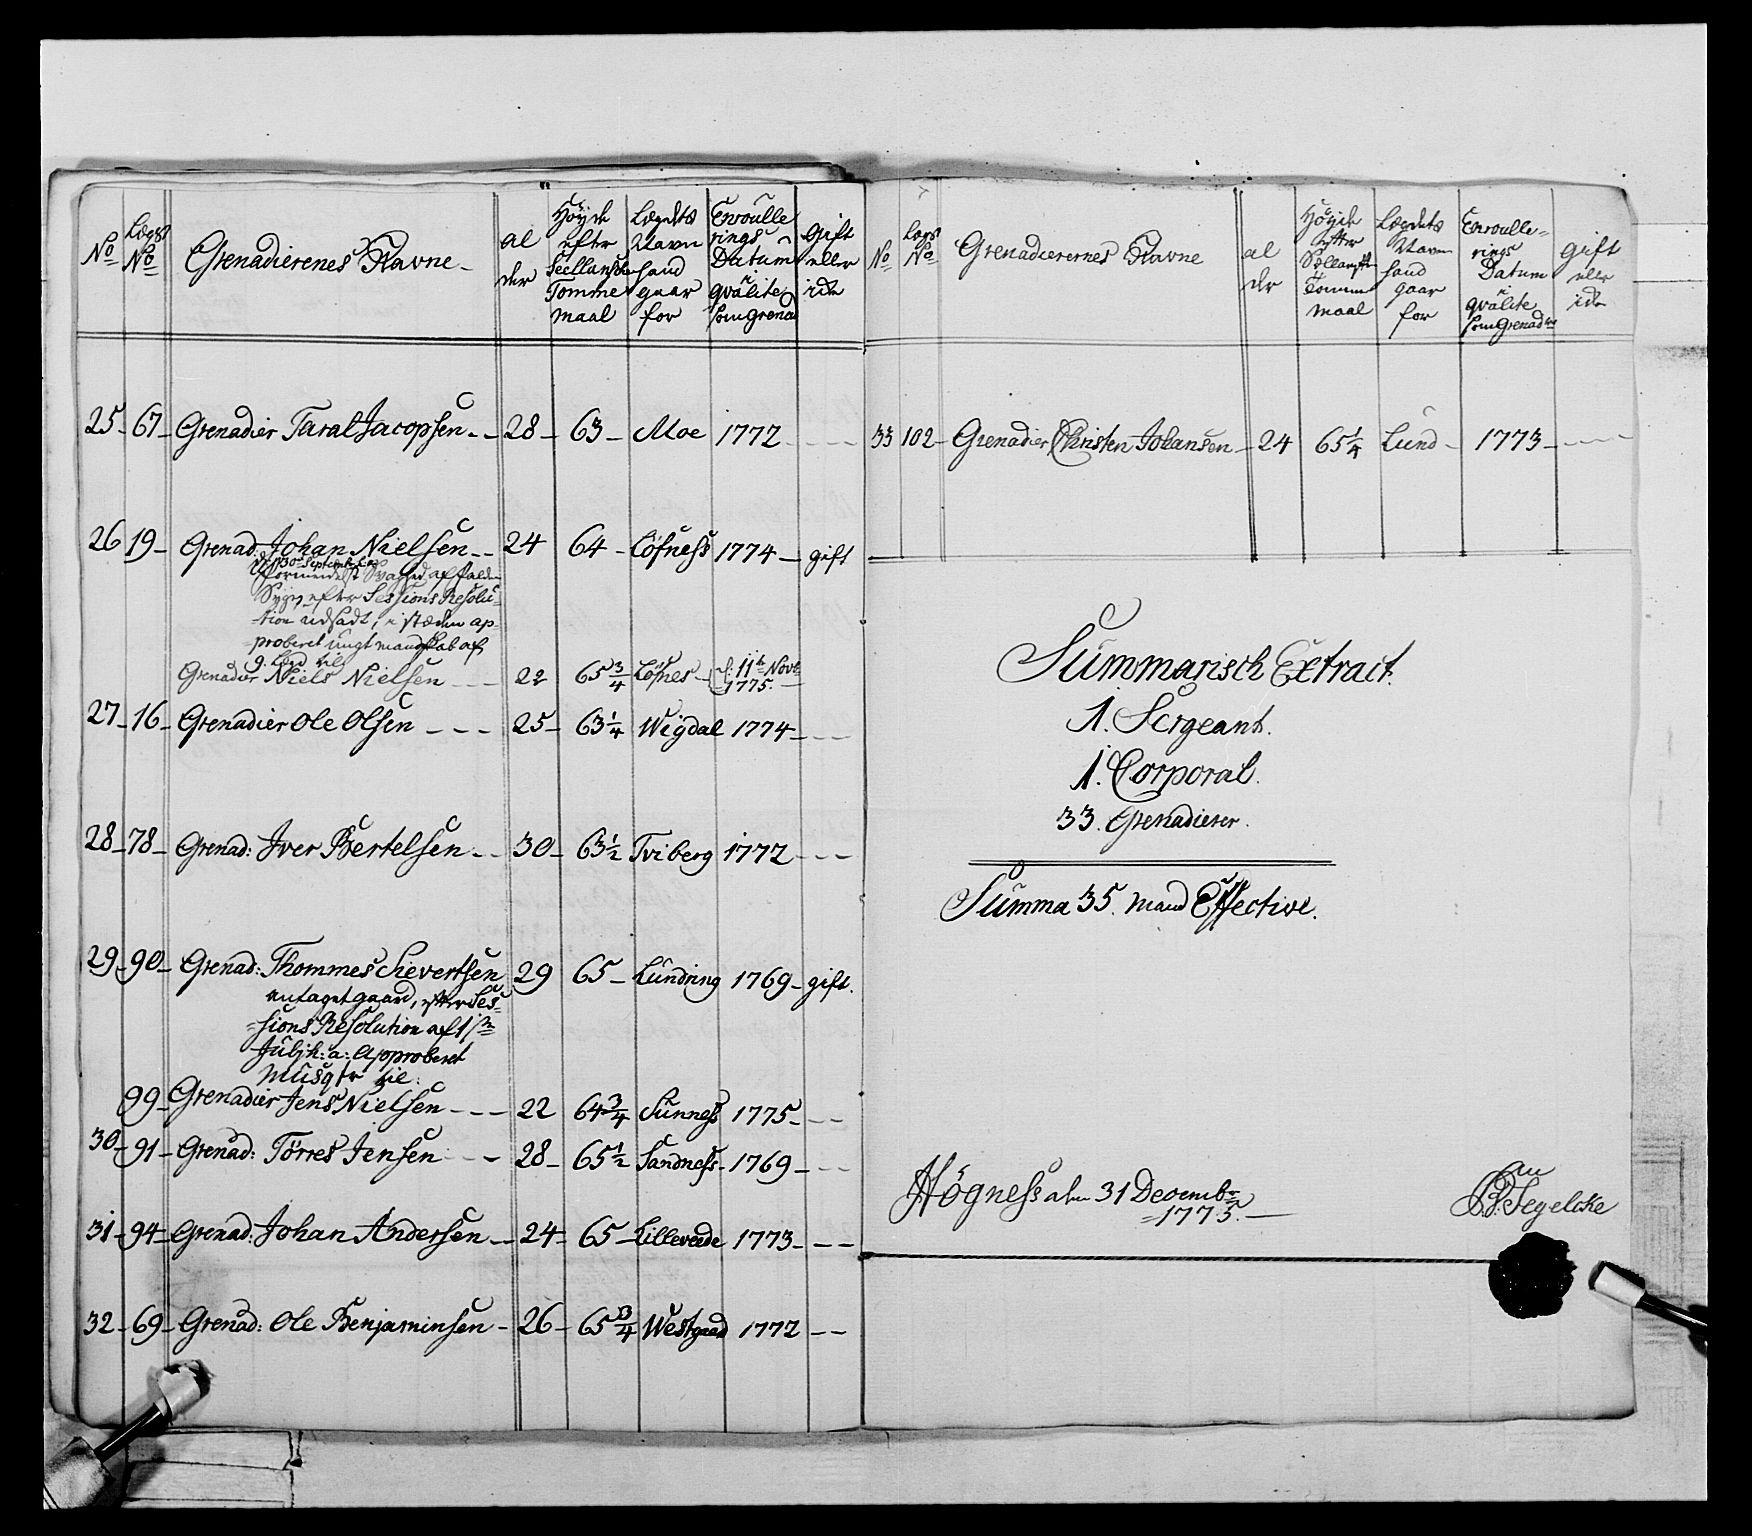 No
Lægs No
Grenadierenes Navne
al
der
Höyde
efter
Seellandske
Tomme
maal
Lægdets
Navn
hand
gaar
for
Enroulle
rings
Datum
i
qvalite
som Grenad
Gift
eller
ide
25 67 Grenadier Taral Jacopsen 28 63 Moe 1772
26 19 Grenad: Johan Nielsen 24 64 Löfness 1774 gift
d. 30 September
formedelst Svaghed af falden
Syge, efter Sessions Resolu-
tion udsadt, i stæden ap-
proberet ungt mandskab af
g. Lægd til
Grenadier Niels Nielsen 22 65 3/4 Löfnes d: 11te Novbr
1775.
27 16 Grenadier Ole Olsen 25 63 1/4 Wigdal 1774
28 78 Grenad: Iver Bertelsen 30 63 1/2 Tviberg 1772
29 90 Grenad: Thommes Sievertsen 29 65 Lundring 1769 gift.
antaget gaard, efter Ses-
sions Resolution af 1ste
Julji h: a: Approberet
Musqtr til:
99 Grenadier Jens Nielsen 22 64 3/4 Sunness 1775
30 91 Grenad: Törres Jensen 28 65 1/2 Sandness 1769
31 94 Grenad: Johan Andersen 24 65 Lilleveede 1773
32 69 Grenad: Ole Benjaminsen 26 65 3/4 Westgaad 1772
No
Lægs No
Grenadierernes Navne
al
der
Höyde
efter
Sællandske
Tomme
maal
Lægdets
Navn
hand
gaar
for
Enroulle-
rings
Datum
i
qvalite
som Grenadier
gift
eller
ide
33 102 Grenadier Christen Johansen 24 65 1/4 Lund 1773
Summarisch Extract.
1. Sergeant.
1. Corporal.
33. Grenadierer.
Summa 35. mand Effective.
Högness den 31 Decembr
1775.
Segelcke